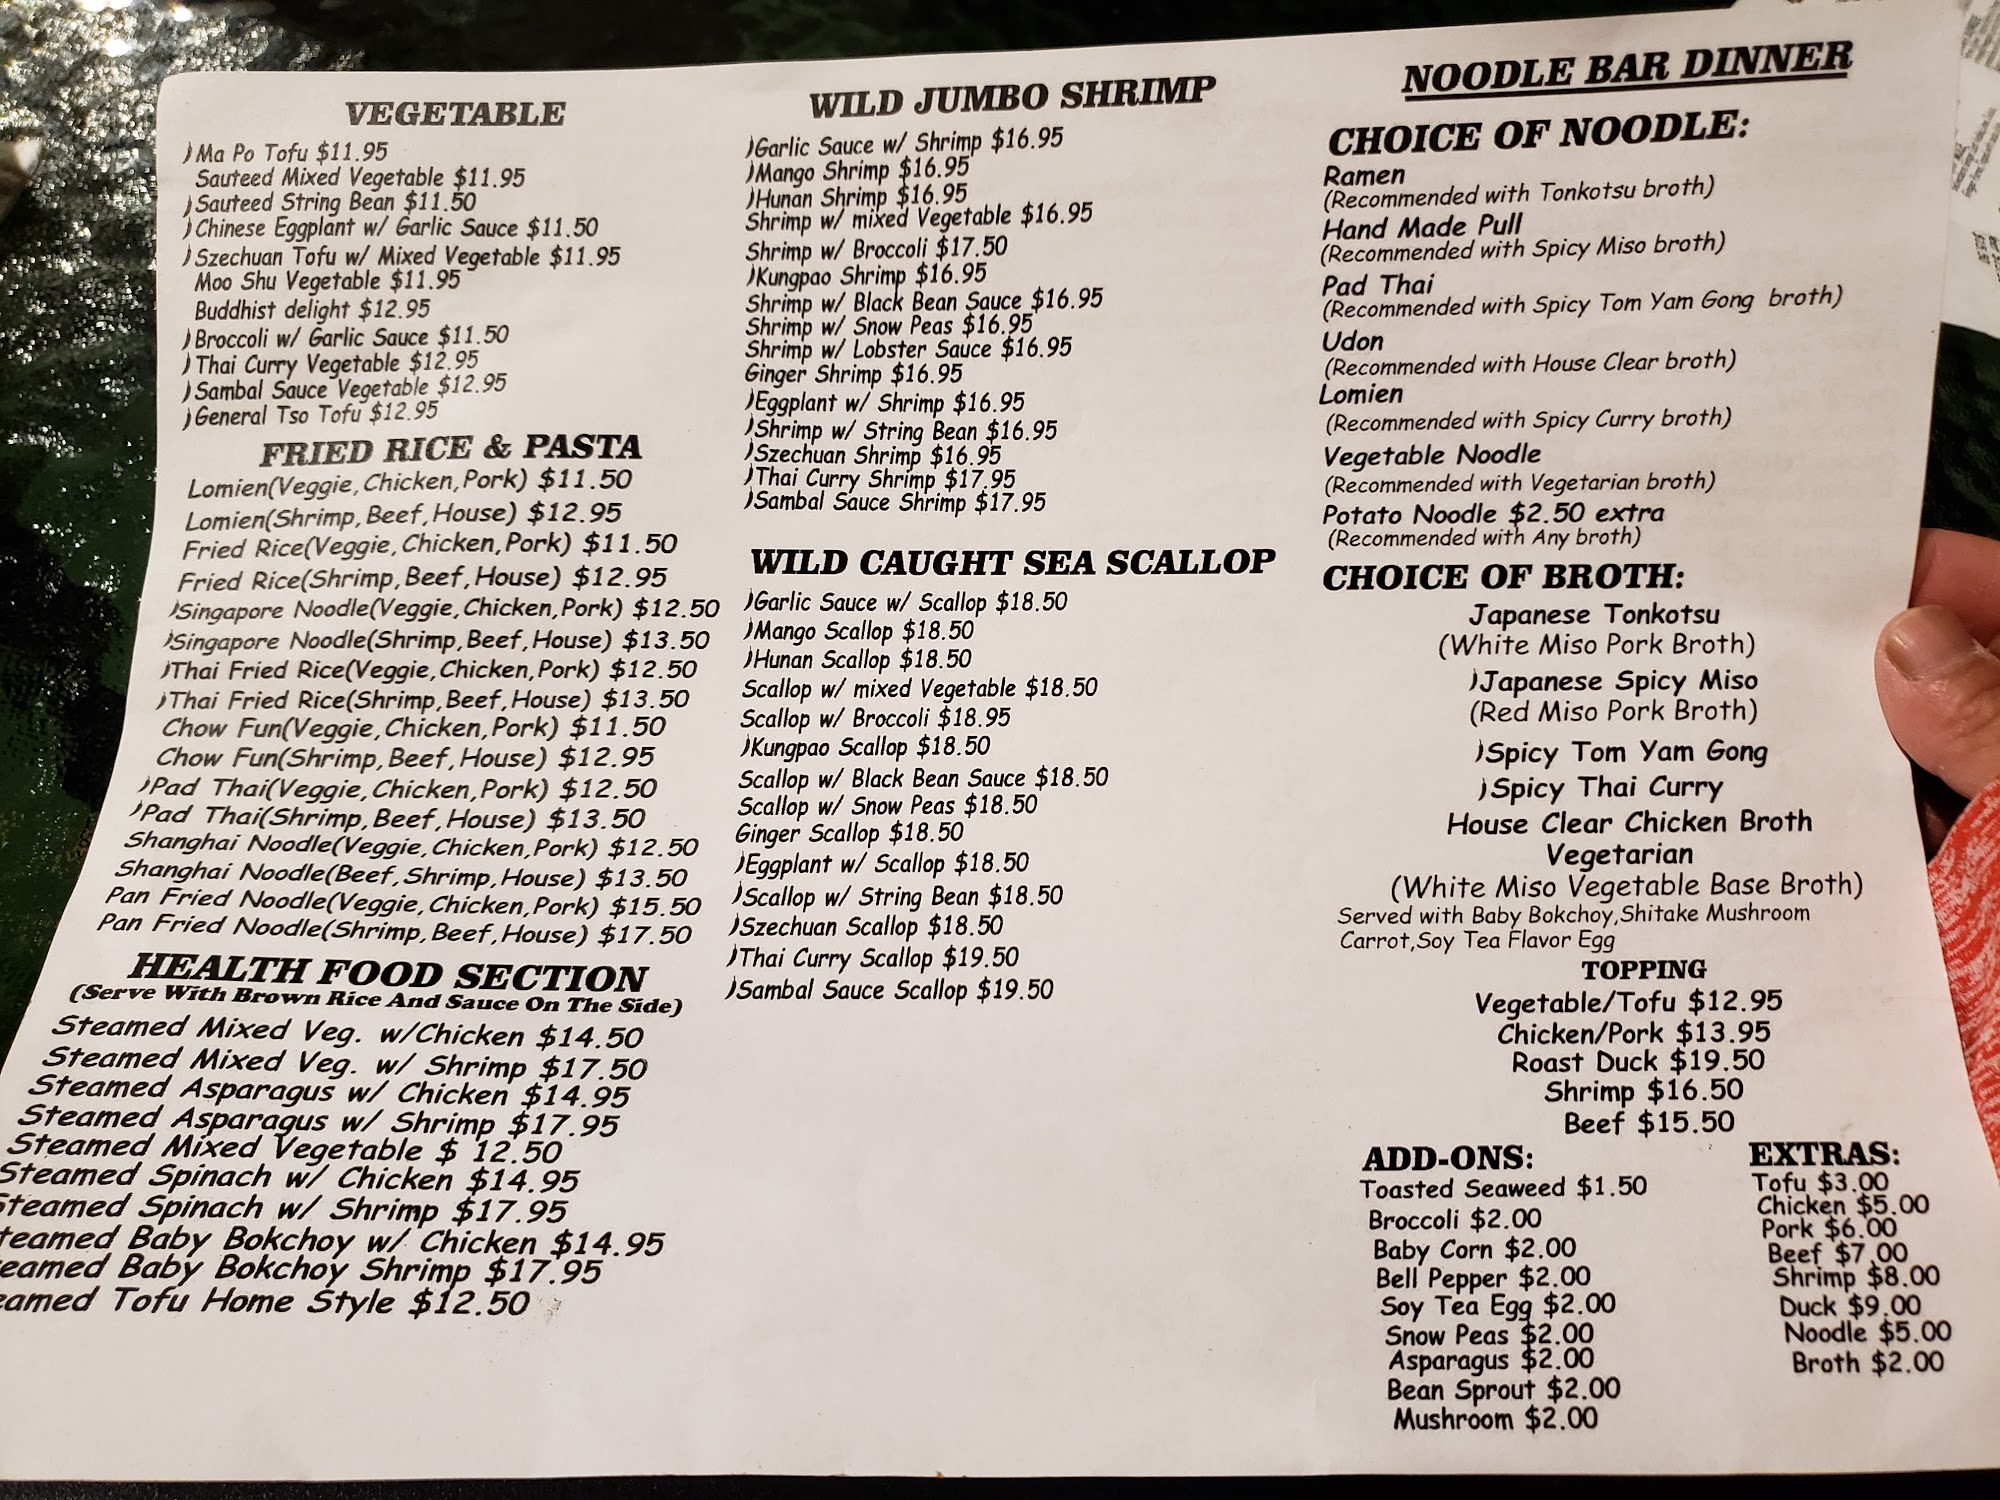 VEGETABLE
Ma Po Tofu $11.95
Sauteed Mixed Vegetable $11.95
Sauteed String Bean $11.50
Chinese Eggplant w/ Garlic Sauce $11.50
Szechuan Tofu w/ Mixed Vegetable $11.95
Moo Shu Vegetable $11.95
Buddhist delight $12.95
Broccoli w/ Garlic Sauce $11.50
Thai Curry Vegetable $12.95
Sambal Sauce Vegetable $12.95
General Tso Tofu $12.95
FRIED RICE & PASTA
Lomien(Veggie,Chicken,Pork) $11.50
Lomien(Shrimp,Beef,House) $12.95
Fried Rice(Veggie,Chicken,Pork) $11.50
Fried Rice(Shrimp,Beef,House) $12.95
Singapore Noodle(Veggie,Chicken,Pork) $12.50
Singapore Noodle(Shrimp,Beef,House) $13.50
Thai Fried Rice(Veggie,Chicken,Pork) $12.50
Thai Fried Rice(Shrimp,Beef,House) $13.50
Chow Fun(Veggie,Chicken,Pork) $11.50
Chow Fun(Shrimp,Beef,House) $12.95
Pad Thai(Veggie,Chicken,Pork) $12.50
Pad Thai(Shrimp,Beef,House) $13.50
Shanghai Noodle(Veggie,Chicken,Pork) $12.50
Shanghai Noodle(Beef,Shrimp,House) $13.50
Pan Fried Noodle(Veggie,Chicken,Pork) $15.50
Pan Fried Noodle(Shrimp,Beef,House) $17.50
HEALTH FOOD SECTION
(Serve With Brown Rice And Sauce On The Side)
Steamed Mixed Veg. w/Chicken $14.50
Steamed Mixed Veg. w/ Shrimp $17.50
Steamed Asparagus w/ Chicken $14.95
Steamed Asparagus w/ Shrimp $17.95
Steamed Mixed Vegetable $ 12.50
Steamed Spinach w/ Chicken $14.95
Steamed Spinach w/ Shrimp $17.95
teamed Baby Bokchoy w/ Chicken $14.95
eamed Baby Bokchoy Shrimp $17.95
eamed Tofu Home Style $12.50
WILD JUMBO SHRIMP
Garlic Sauce w/ Shrimp $16.95
Mango Shrimp $16.95
Hunan Shrimp $16.95
Shrimp w/ mixed Vegetable $16.95
Shrimp w/ Broccoli $17.50
Kungpao Shrimp $16.95
Shrimp w/ Black Bean Sauce $16.95
Shrimp w/ Snow Peas $16.95
Shrimp w/ Lobster Sauce $16.95
Ginger Shrimp $16.95
Eggplant w/ Shrimp $16.95
Shrimp w/ String Bean $16.95
Szechuan Shrimp $16.95
Thai Curry Shrimp $17.95
Sambal Sauce Shrimp $17.95
WILD CAUGHT SEA SCALLOP
Garlic Sauce w/ Scallop $18.50
Mango Scallop $18.50
Hunan Scallop $18.50
Scallop w/ mixed Vegetable $18.50
Scallop w/ Broccoli $18.95
Kungpao Scallop $18.50
Scallop w/ Black Bean Sauce $18.50
Scallop w/ Snow Peas $18.50
Ginger Scallop $18.50
Eggplant w/ Scallop $18.50
Scallop w/ String Bean $18.50
Szechuan Scallop $18.50
Thai Curry Scallop $19.50
Sambal Sauce Scallop $19.50
NOODLE BAR DINNER
CHOICE OF NOODLE:
Ramen
(Recommended with Tonkotsu broth)
Hand Made Pull
(Recommended with Spicy Miso broth)
Pad Thai
(Recommended with Spicy Tom Yam Gong broth)
Udon
(Recommended with House Clear broth)
Lomien
(Recommended with Spicy Curry broth)
Vegetable Noodle
(Recommended with Vegetarian broth)
Potato Noodle $2.50 extra
(Recommended with Any broth)
CHOICE OF BROTH:
Japanese Tonkotsu
(White Miso Pork Broth)
Japanese Spicy Miso
(Red Miso Pork Broth)
Spicy Tom Yam Gong
Spicy Thai Curry
House Clear Chicken Broth
Vegetarian
(White Miso Vegetable Base Broth)
Served with Baby Bokchoy,Shitake Mushroom
Carrot,Soy Tea Flavor Egg
TOPPING
Vegetable/Tofu $12.95
Chicken/Pork $13.95
Roast Duck $19.50
Shrimp $16.50
Beef $15.50
ADD-ONS:
Toasted Seaweed $1.50
Broccoli $2.00
Baby Corn $2.00
Bell Pepper $2.00
Soy Tea Egg $2.00
Snow Peas $2.00
Asparagus $2.00
Bean Sprout $2.00
Mushroom $2.00
EXTRAS:
Tofu $3.00
Chicken $5.00
Pork $6.00
Beef $7.00
Shrimp $8.00
Duck $9.00
Noodle $5.00
Broth $2.00